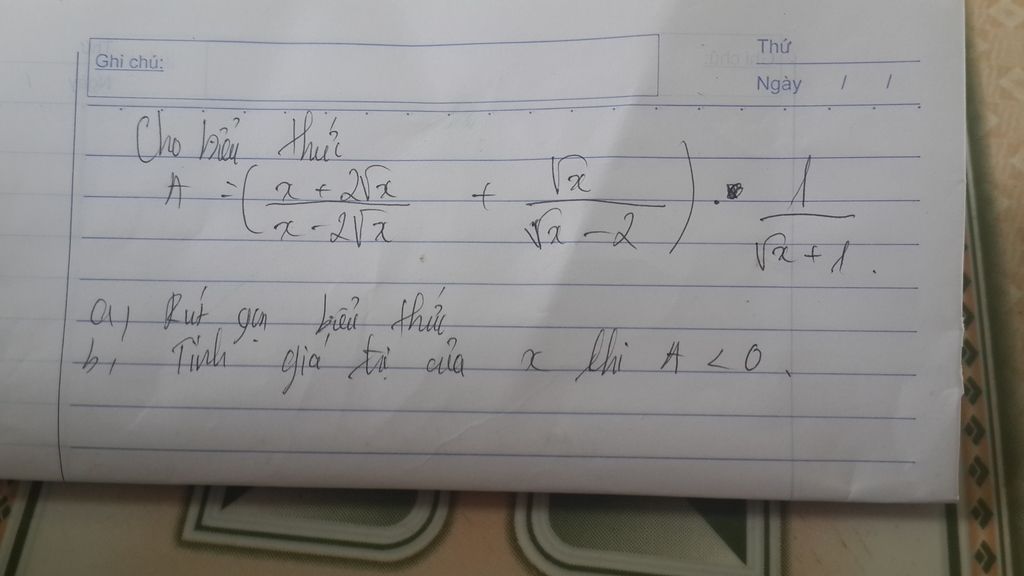 Ghi chú:
Thứ
Ngày / /
Cho biểu thức
A = ( (x + 2√x)/(x - 2√x) + √x/(√x - 2) ) . 1/(√x + 1) .
a, Rút gọn biểu thức
b, Tính giá trị của x khi A < 0 .